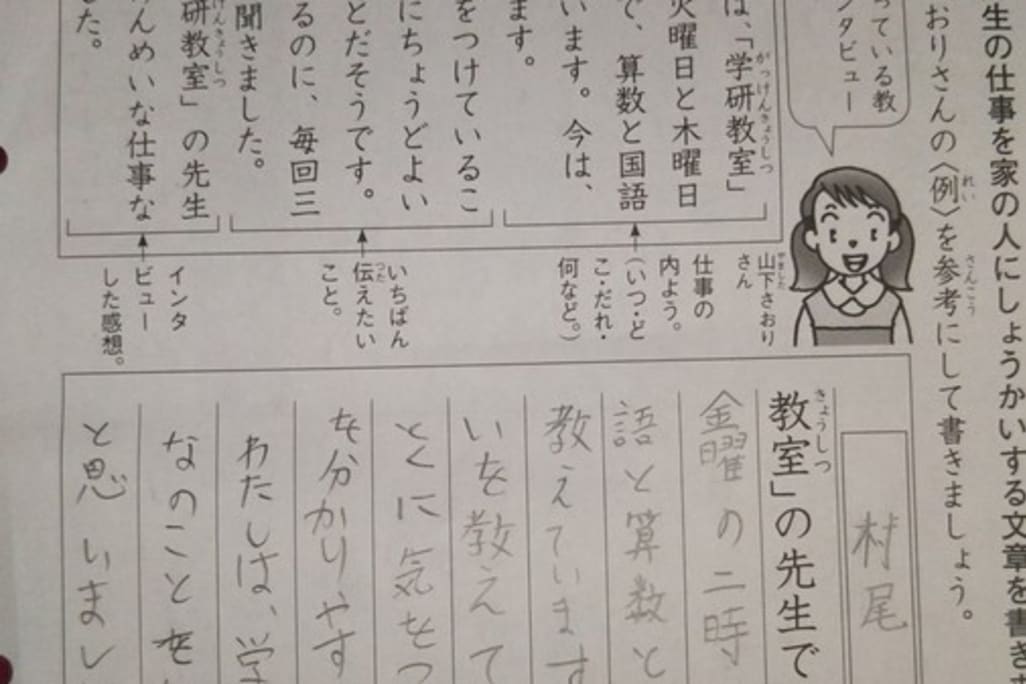 生の仕事を家の人にしょうかいする文章を書き
おりさんの〈例〉を参考にして書きましょう。
っている教
ンタビュー
は、「学研教室」
火曜日と木曜日
で、算数と国語
います。今は、
ます。
をつけているこ
にちょうどよい
とだそうです。
るのに、毎回三
聞きました。
研教室」の先生
んめいな仕事な
した。
山下さおり
さん
仕事の
内よう。
(いつ・ど
こ・だれ・
何など。)
いちばん
伝えたい
こと。
インタ
ビュー
した感想。
村尾
教室」の先生で
金曜の二時
語と算数と
教えています
いを教えて
とくに気をつ
を分かりやす
わたしは、学
なのことを
と思いまし